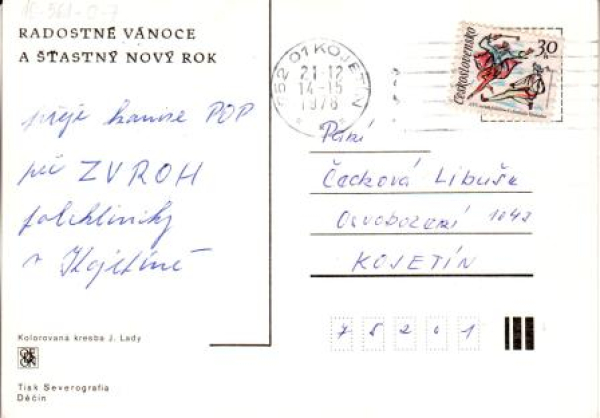 1C-561-0-7
RADOSTNÉ VÁNOCE
A ŠŤASTNÝ NOVÝ ROK
přeje komise POP
při ZVROH
polikliniky
v Kojetíně
752 01 KOJETÍN
21-12
14-15
1978
Československo
30
Paní
Čecková Libuše
Osvobození 1042
KOJETÍN
7 5 2 0 1
Kolorovaná kresba J. Lady
Tisk Severografia
Děčín